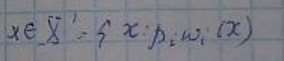 x ∈ X' = { x : p_i w_i (x)